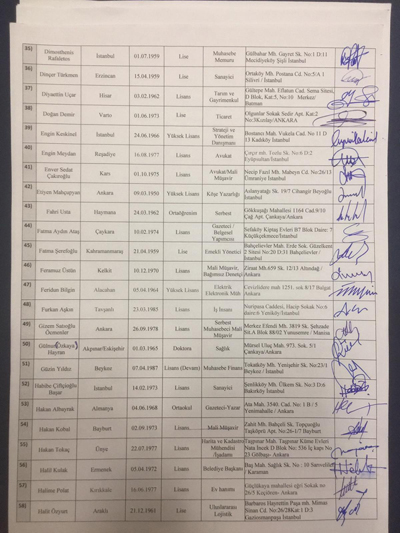 35) Dimosthenis Rafailetes İstanbul 01.07.1959 Lise Muhasebe Memuru Gülbahar Mh. Gayret Sk. No:1 D:11 Mecidiyeköy Şişli İstanbul
36) Dinçer Türkmen Erzincan 15.04.1959 Lise Sanayici Ortaköy Mh. Postana Cd. No:5/A 1 Silivri / İstanbul
37) Diyaettin Uçar Hisar 03.02.1962 Lisans Tarım ve Gayrimenkul D Blok, Kat:5, No:10 Merkez/ Batman
38) Doğan Demir Varto 01.06.1973 Lise Ticaret Olgunlar Sokak Sedir Apt. Kat:2 No:3Kızılay/ANKARA
39) Engin Kenkinel İstanbul 24.06.1966 Yüksek Lisans Strateji ve Yönetim Danışmanı Bostancı Mah. Vukela Cad. No 11 D 13 Kadıköy İstanbul
40) Engin Meydan Reşadiye 16.08.1977 Lisans Avukat Eyüpsultan/İstanbul
41) Enver Sedat Çakıroğlu Kars 01.10.1975 Lisans Avukat/Mali Müşavir Necip Fazıl Mh. Mahsyn Cd. No:26/13 Ümraniye İstanbul
42) Eriyen Mahçupyan Ankara 09.03.1950 Yüksek Lisans Köşe Yazarlığı Aslanyatağı Sk. 19/7 Cihangir Beyoğlu İstanbul
43) Fahri Usta Haymana 24.03.1962 Ortaöğretim Serbest Gökkuşağı Mahallesi 1164 Cad.9/10 Çağ Apt. Çankaya/Ankara
44) Fatma Aydan Ataş Çaykara 10.02.1974 Lisans Gazeteci / Belgesel Yapımcısı Sefaköy Kiptaş Evleri B7 Blok Daire: 7 Küçükçekmece/İstanbul
45) Fatma Şerefoğlu Kahramanmaraş 21.04.1959 Lise Emekli Yönetici Bahçelievler Mah. Erde Sok. Güzelkent 2 Sitesi No:20 D:31 Bahçelievler / İstanbul
46) Feramuz Üstün Kelkit 03.12.1970 Lisans Mali Müşavir, Bağımsız Denetçi Ziraat Mh.659 Sk. 12/13 Altındağ / Ankara
47) Feridun Bilgin Alacahan 05.04.1964 Yüksek Lisans Elektrik Elektronik Müh. Cevizlidere mah 1251. sok 8/17 Balgat Ankara
48) Furkan Aşkın Tavşanlı 23.03.1985 Lisans İş İnsanı Nuripaşa Caddesi, Haçip Sokak No:6 daire:6 Yeniköy/İstanbul
49) Gizem Satıoğlu Özmenler Ankara 26.09.1978 Lisans Serbest Muhasebeci Mali Müşavir Merkez Efendi Mh. 3819 Sk. Şehzade Sit.A Blok 88/02 Yunusemre / Manisa
50) Gülnur Özkaya Hayran Akpınar/Eskişehir 01.03.1965 Doktora Sağlık Mürsel Uluç Mah. 973. Sok. 5/1 Çankaya/Ankara
51) Güzin Yıldız Beykoz 07.04.1987 Lisans (Devam) Muhasebe Finans Tokatköy Mh. Yenişehir Sk. No:23/1 Beykoz / İstanbul
52) Habibe Çiftçioğlu Başar İstanbul 14.02.1973 Lisans Sanayici Şenlikköy Mh. Ülkem Sk. No:3 D:6 Bakırköy İstanbul
53) Hakan Albayrak Almanya 04.06.1968 Ortaokul Gazeteci-Yazar Ata Mah. 3540. Cad. No: 1 B / 5 Yenimahalle / Ankara
54) Hakan Kobal Bayburt 02.09.1973 Lisans Mali Müşavir Zahit Mh. Bahçeli Sk. Topçuoğlu Taşköprü Apt. No:26-1/7 Bayburt
55) Hakan Tokaç Ünye 22.07.1977 Lisans Harita ve Kadastro Mühendisi Taşpınar Mah. Taşpınar Küme Evleri Nata İncek D Blok No: 516 İç kapı No: 23 Gölbaşı- Ankara
56) Halil Kulak Ermenek 05.04.1972 Lisans Belediye Başkanı Baş Mah. Sağlık Sk. No : 10 Sarıveliler / Karaman
57) Halime Polat 16.06.1977 Lisans Ev hanımı Güçlükaya mahallesi eğri Sokak no 26/5 Keçiören- Ankara
58) Halil Özyurt Araklı 23.12.1961 Lise Uluslararası Lojistik Barbaros Hayrettin Paşa mh. Mimar Sinan Cd. No:26/28Kat:1 D:3 Gaziosmanpaşa İstanbul